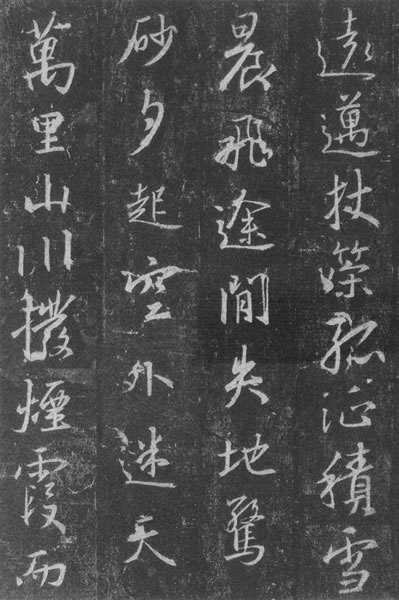 遠邁杖策孤征積雪
晨飛途間失地驚
砂夕起空外迷天
萬里山川撥煙霞而